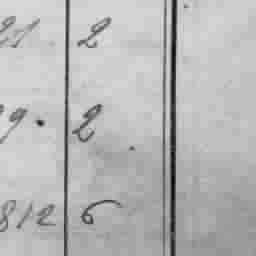 21 2
9. 2
812 6